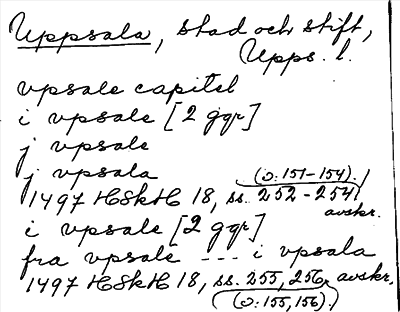 Uppsala, stad och stift,
Upps. l.
vpsale capitel
i vpsale [2 ggr]
j vpsale
j vpsala (ɔ: 151-154).
1497 HSkH 18, ss. 252-254
avskr.
i vpsale [2 ggr]
fra vpsale --- i vpsala
1497 HSkH 18, ss. 255, 256, avskr.
(ɔ: 155, 156).